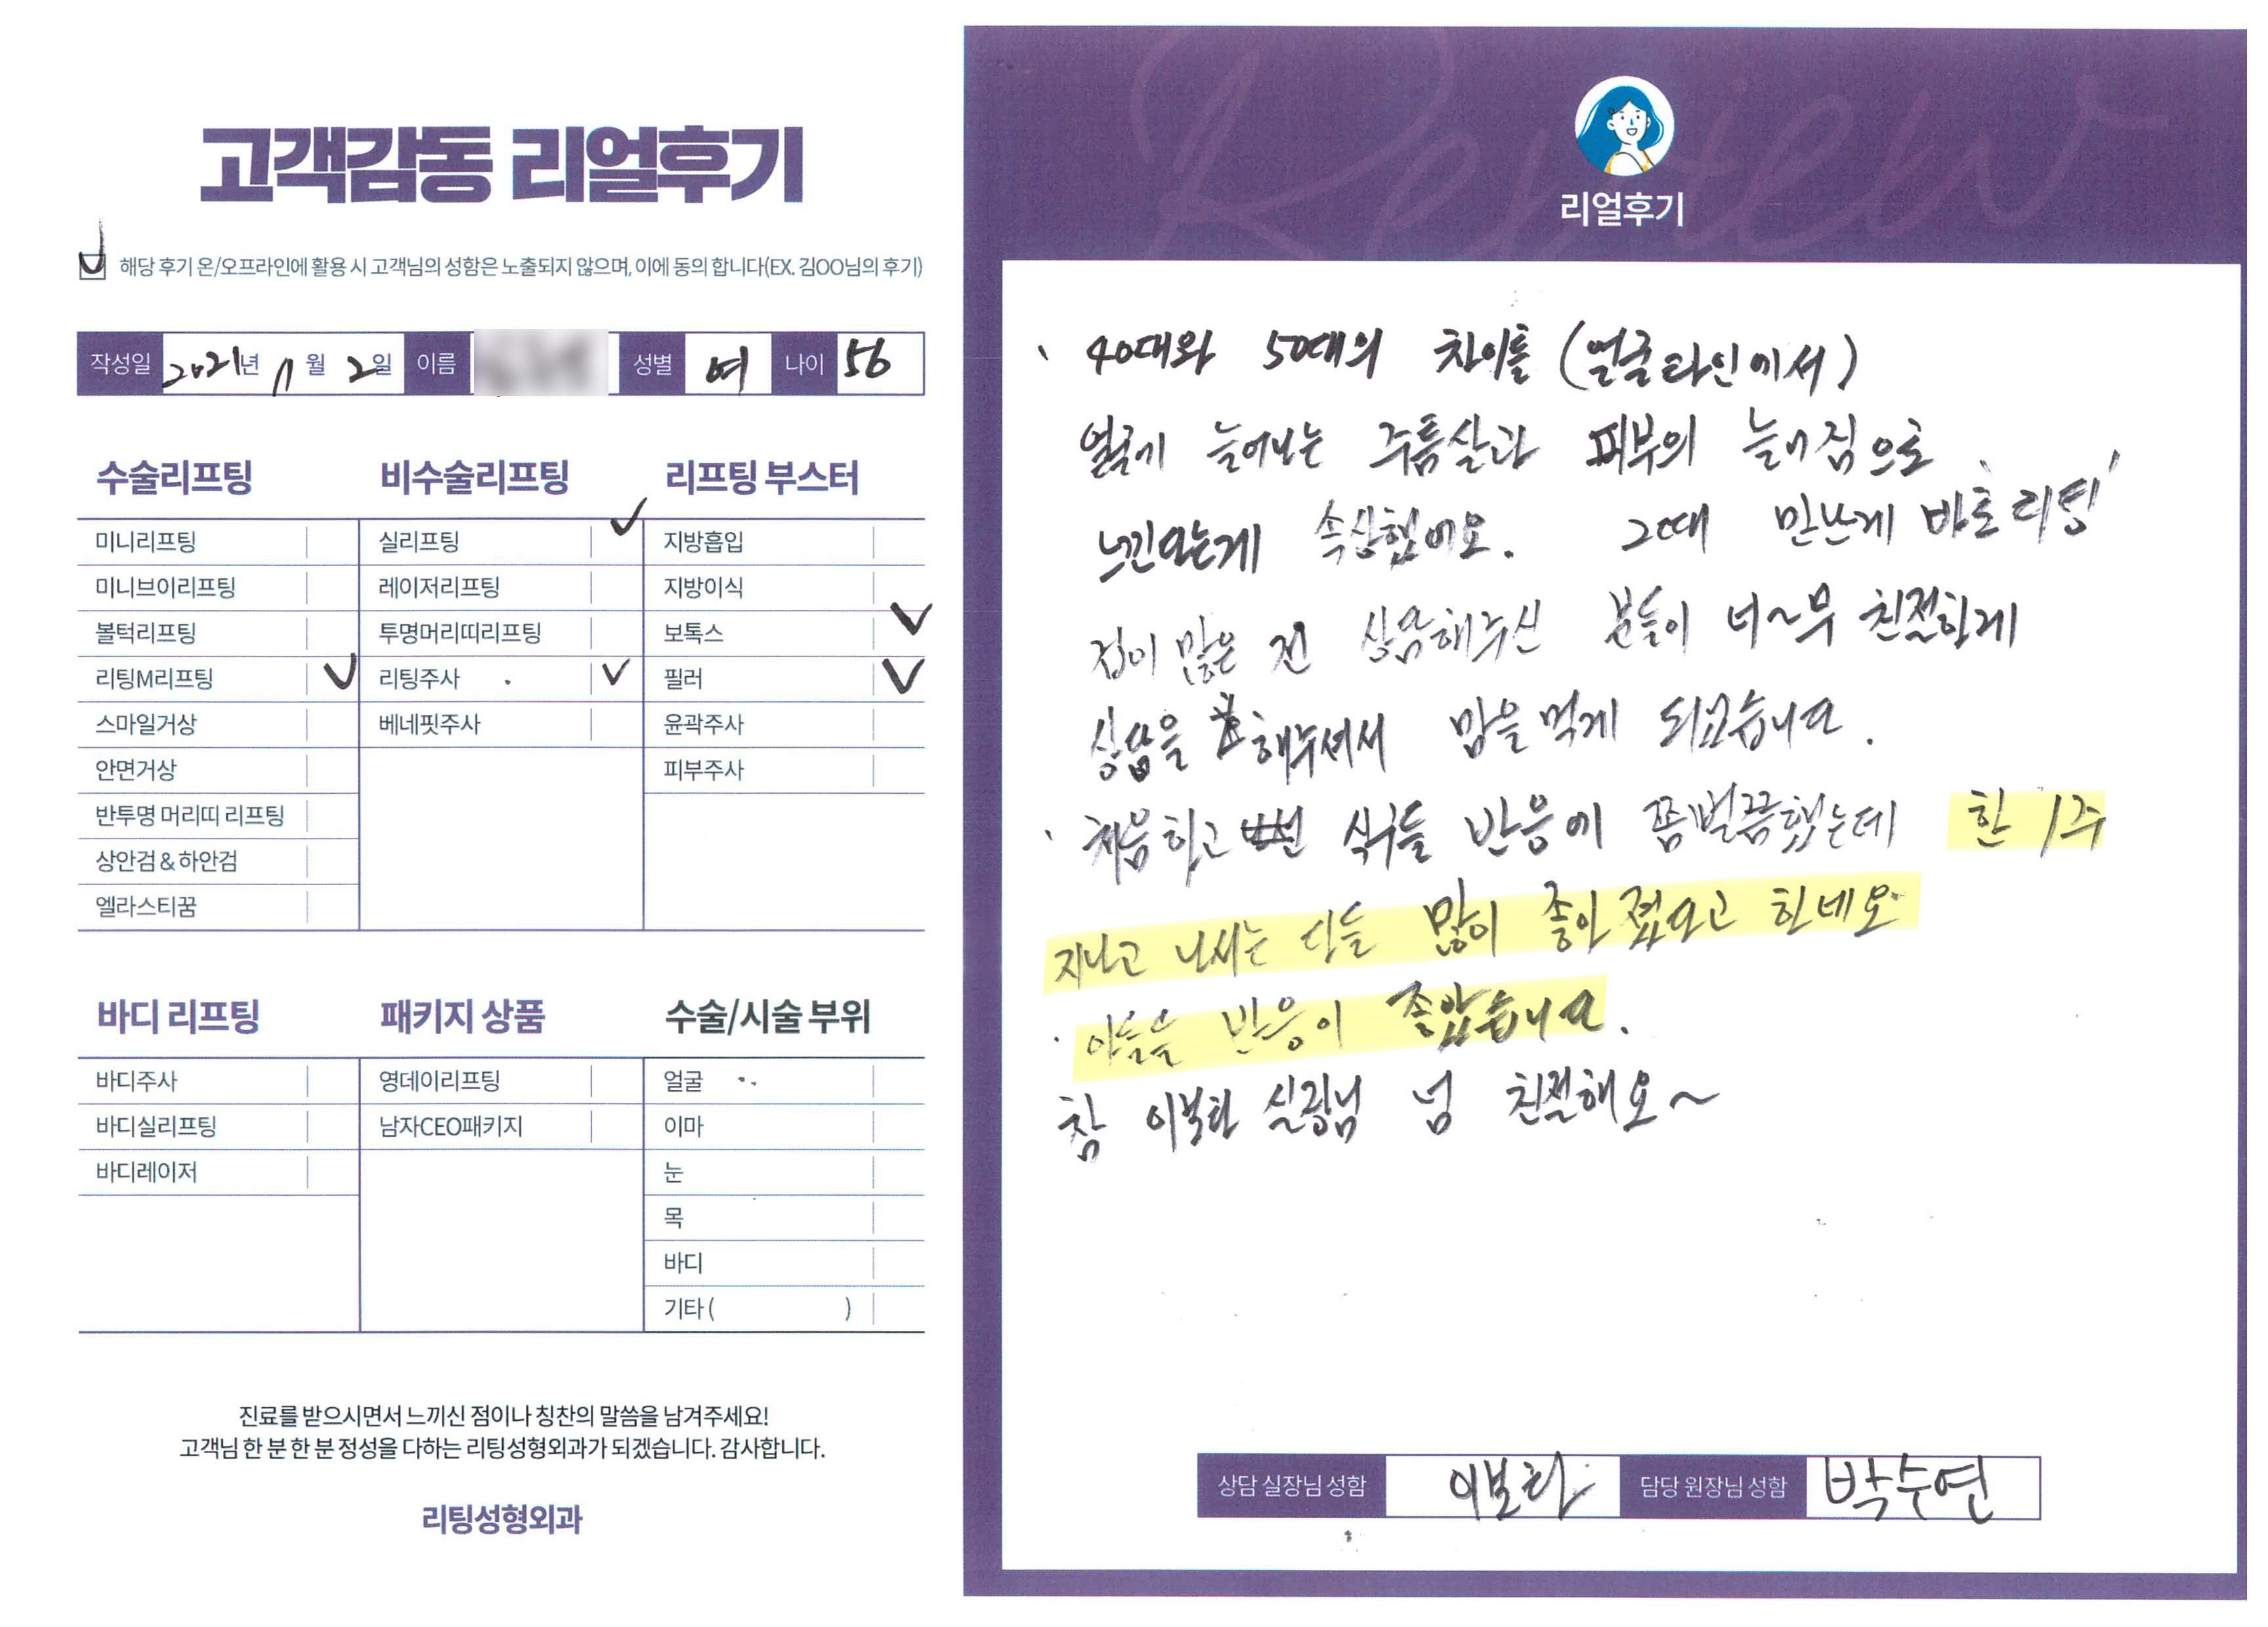 고객감동 리얼후기
해당 후기 온/오프라인에 활용 시 고객님의 성함은 노출되지 않으며, 이에 동의 합니다(EX. 김OO님의 후기)
작성일 2021년 11월 2일 이름 성별 여 나이 56
수술리프팅
미니리프팅
미니브이리프팅
볼턱리프팅
리팅M리프팅 ✓
스마일거상
안면거상
반투명 머리띠 리프팅
상안검 & 하안검
엘라스티꿈
비수술리프팅
실리프팅 ✓
레이저리프팅
투명머리띠리프팅
리팅주사 ✓
베네핏주사
리프팅 부스터
지방흡입
지방이식
보톡스 ✓
필러 ✓
윤곽주사
피부주사
바디 리프팅
바디주사
바디실리프팅
바디레이저
패키지 상품
영데이리프팅
남자CEO패키지
수술/시술 부위
얼굴
이마
눈
목
바디
기타 ( )
진료를 받으시면서 느끼신 점이나 칭찬의 말씀을 남겨주세요!
고객님 한 분 한 분 정성을 다하는 리팅성형외과가 되겠습니다. 감사합니다.
리팅성형외과
Review
리얼후기
40대와 50대의 차이를 (얼굴라인에서)
얼굴에 늘어나는 주름살과 피부의 늘어짐으로
느낀다는게 속상했어요. 그때 만난게 바로 '리팅'
겁이 많은 전 상담해주신 분들이 너~무 친절하게
상담을 해주셔서 맘을 먹게 되었습니다.
처음하고 식구들 반응이 쫌 벌끔했는데 한 1주
지나고 나서는 다들 많이 좋아졌다고 하네요
아들들 반응이 좋았습니다.
참 이보라 실장님 넘 친절해요~
상담 실장님 성함 이보라 담당 원장님 성함 박수연